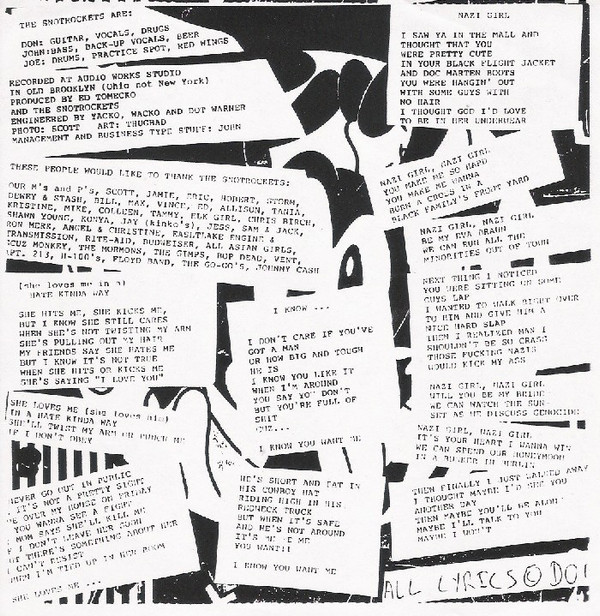 THE SNOTROCKETS ARE:
DON: GUITAR, VOCALS, DRUGS
JOHN:BASS, BACK-UP VOCALS, BEER
JOE: DRUMS, PRACTICE SPOT, RED WINGS
RECORDED AT AUDIO WORKS STUDIO
IN OLD BROOKLYN (Ohio not New York)
PRODUCED BY ED TOMECKO
AND THE SNOTROCKETS
ENGINEERED BY YACKO, WACKO AND DOT WARNER
PHOTO: SCOTT ART: THUGBAD
MANAGEMENT AND BUSINESS TYPE STUFF: JOHN
THESE PEOPLE WOULD LIKE TO THANK THE SNOTROCKETS:
OUR M's and P's, SCOTT, JAMIE, ERIC, ROBERT, STORM,
DEWEY & STASH, BILL, MAX, VINCE, ED, ALLISON, TANIA,
KRISTINE, MIKE, COLLEEN, TAMMY, ELK GIRL, CHRIS BIRCH,
SHAWN YOUNG, KONYA, JAY (kinko's), JESS, SAM & JACK,
RON MERK, ANGEL & CHRISTINE, EASTLAKE ENGINE &
TRANSMISSION, RITE-AID, BUDWEISER, ALL ASIAN GIRLS,
MONKEY, THE MORMONS, THE GIMPS, BUP DEAD, VENT,
APT. 213, H-100's, FLOYD BAND, THE GO-GO'S, JOHNNY CASH
(she loves me in a)
HATE KINDA WAY
SHE HITS ME, SHE KICKS ME,
BUT I KNOW SHE STILL CARES
WHEN SHE'S NOT TWISTING MY ARM
SHE'S PULLING OUT MY HAIR
MY FRIENDS SAY SHE HATES ME
BUT I KNOW IT'S NOT TRUE
WHEN SHE HITS OR KICKS ME
SHE'S SAYING "I LOVE YOU"
SHE LOVES ME (she loves him)
IN A HATE KINDA WAY
SHE'LL TWIST MY ARM OR PUNCH ME
IF I DON'T OBEY
NEVER GO OUT IN PUBLIC
IT'S NOT A PRETTY SIGHT
OVER MY HOUSE ON FRIDAY
YOU WANNA SEE A FIGHT
MOM SAYS SHE'LL KILL ME
I DON'T LEAVE HER SOON
THERE'S SOMETHING ABOUT HER
I CAN'T RESIST
WHEN I'M TIED UP IN HER ROOM
SHE LOVES ME ...
I KNOW ...
I DON'T CARE IF YOU'VE
GOT A MAN
OR HOW BIG AND TOUGH
HE IS
I KNOW YOU LIKE IT
WHEN I'M AROUND
YOU SAY YOU DON'T
BUT YOU'RE FULL OF
SHIT
CUZ...
I KNOW YOU WANT ME
HE'S SHORT AND FAT IN
HIS COWBOY HAT
RIDING HIGH IN HIS
REDNECK TRUCK
BUT WHEN IT'S SAFE
AND HE'S NOT AROUND
IT'S ME
YOU WANT!!
I KNOW YOU WANT ME
NAZI GIRL
I SAW YA IN THE MALL AND
THOUGHT THAT YOU
WERE PRETTY CUTE
IN YOUR BLACK FLIGHT JACKET
AND DOC MARTEN BOOTS
YOU WERE HANGIN' OUT
WITH SOME GUYS WITH
NO HAIR
I THOUGHT GOD I'D LOVE
TO BE IN HER UNDERWEAR
NAZI GIRL, NAZI GIRL
YOU MAKE ME SO HARD
YOU MAKE ME WANNA
BURN A CROSS IN A
BLACK FAMILY'S FRONT YARD
NAZI GIRL, NAZI GIRL
BE MY EVA BRAUN
WE CAN RUN ALL THE
MINORITIES OUT OF TOWN
NEXT THING I NOTICED
YOU WERE SITTING ON SOME
GUYS LAP
I WANTED TO WALK RIGHT OVER
TO HIM AND GIVE HIM A
NICE HARD SLAP
THEN I REALIZED MAN I
SHOULDN'T BE SO CRASS
THOSE FUCKING NAZIS
WOULD KICK MY ASS
NAZI GIRL, NAZI GIRL
WILL YOU BE MY BRIDE
WE CAN WATCH THE SUN-
SET AS WE DISCUSS GENOCIDE
NAZI GIRL, NAZI GIRL
IT'S YOUR HEART I WANNA WIN
WE CAN SPEND OUR HONEYMOON
IN A BUNKER IN BERLIN
THEN FINALLY I JUST WALKED AWAY
I THOUGHT MAYBE I'D SEE YOU
ANOTHER DAY
THEN MAYBE YOU'LL BE ALONE
MAYBE I'LL TALK TO YOU
MAYBE I WON'T
ALL LYRICS © DO